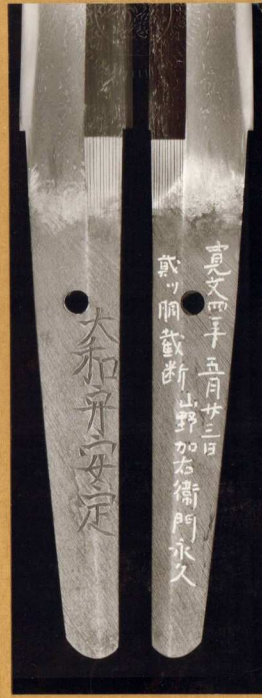 大和守安定
寛文四年 五月廿三日
貮ツ胴截断 山野加右衛門永久